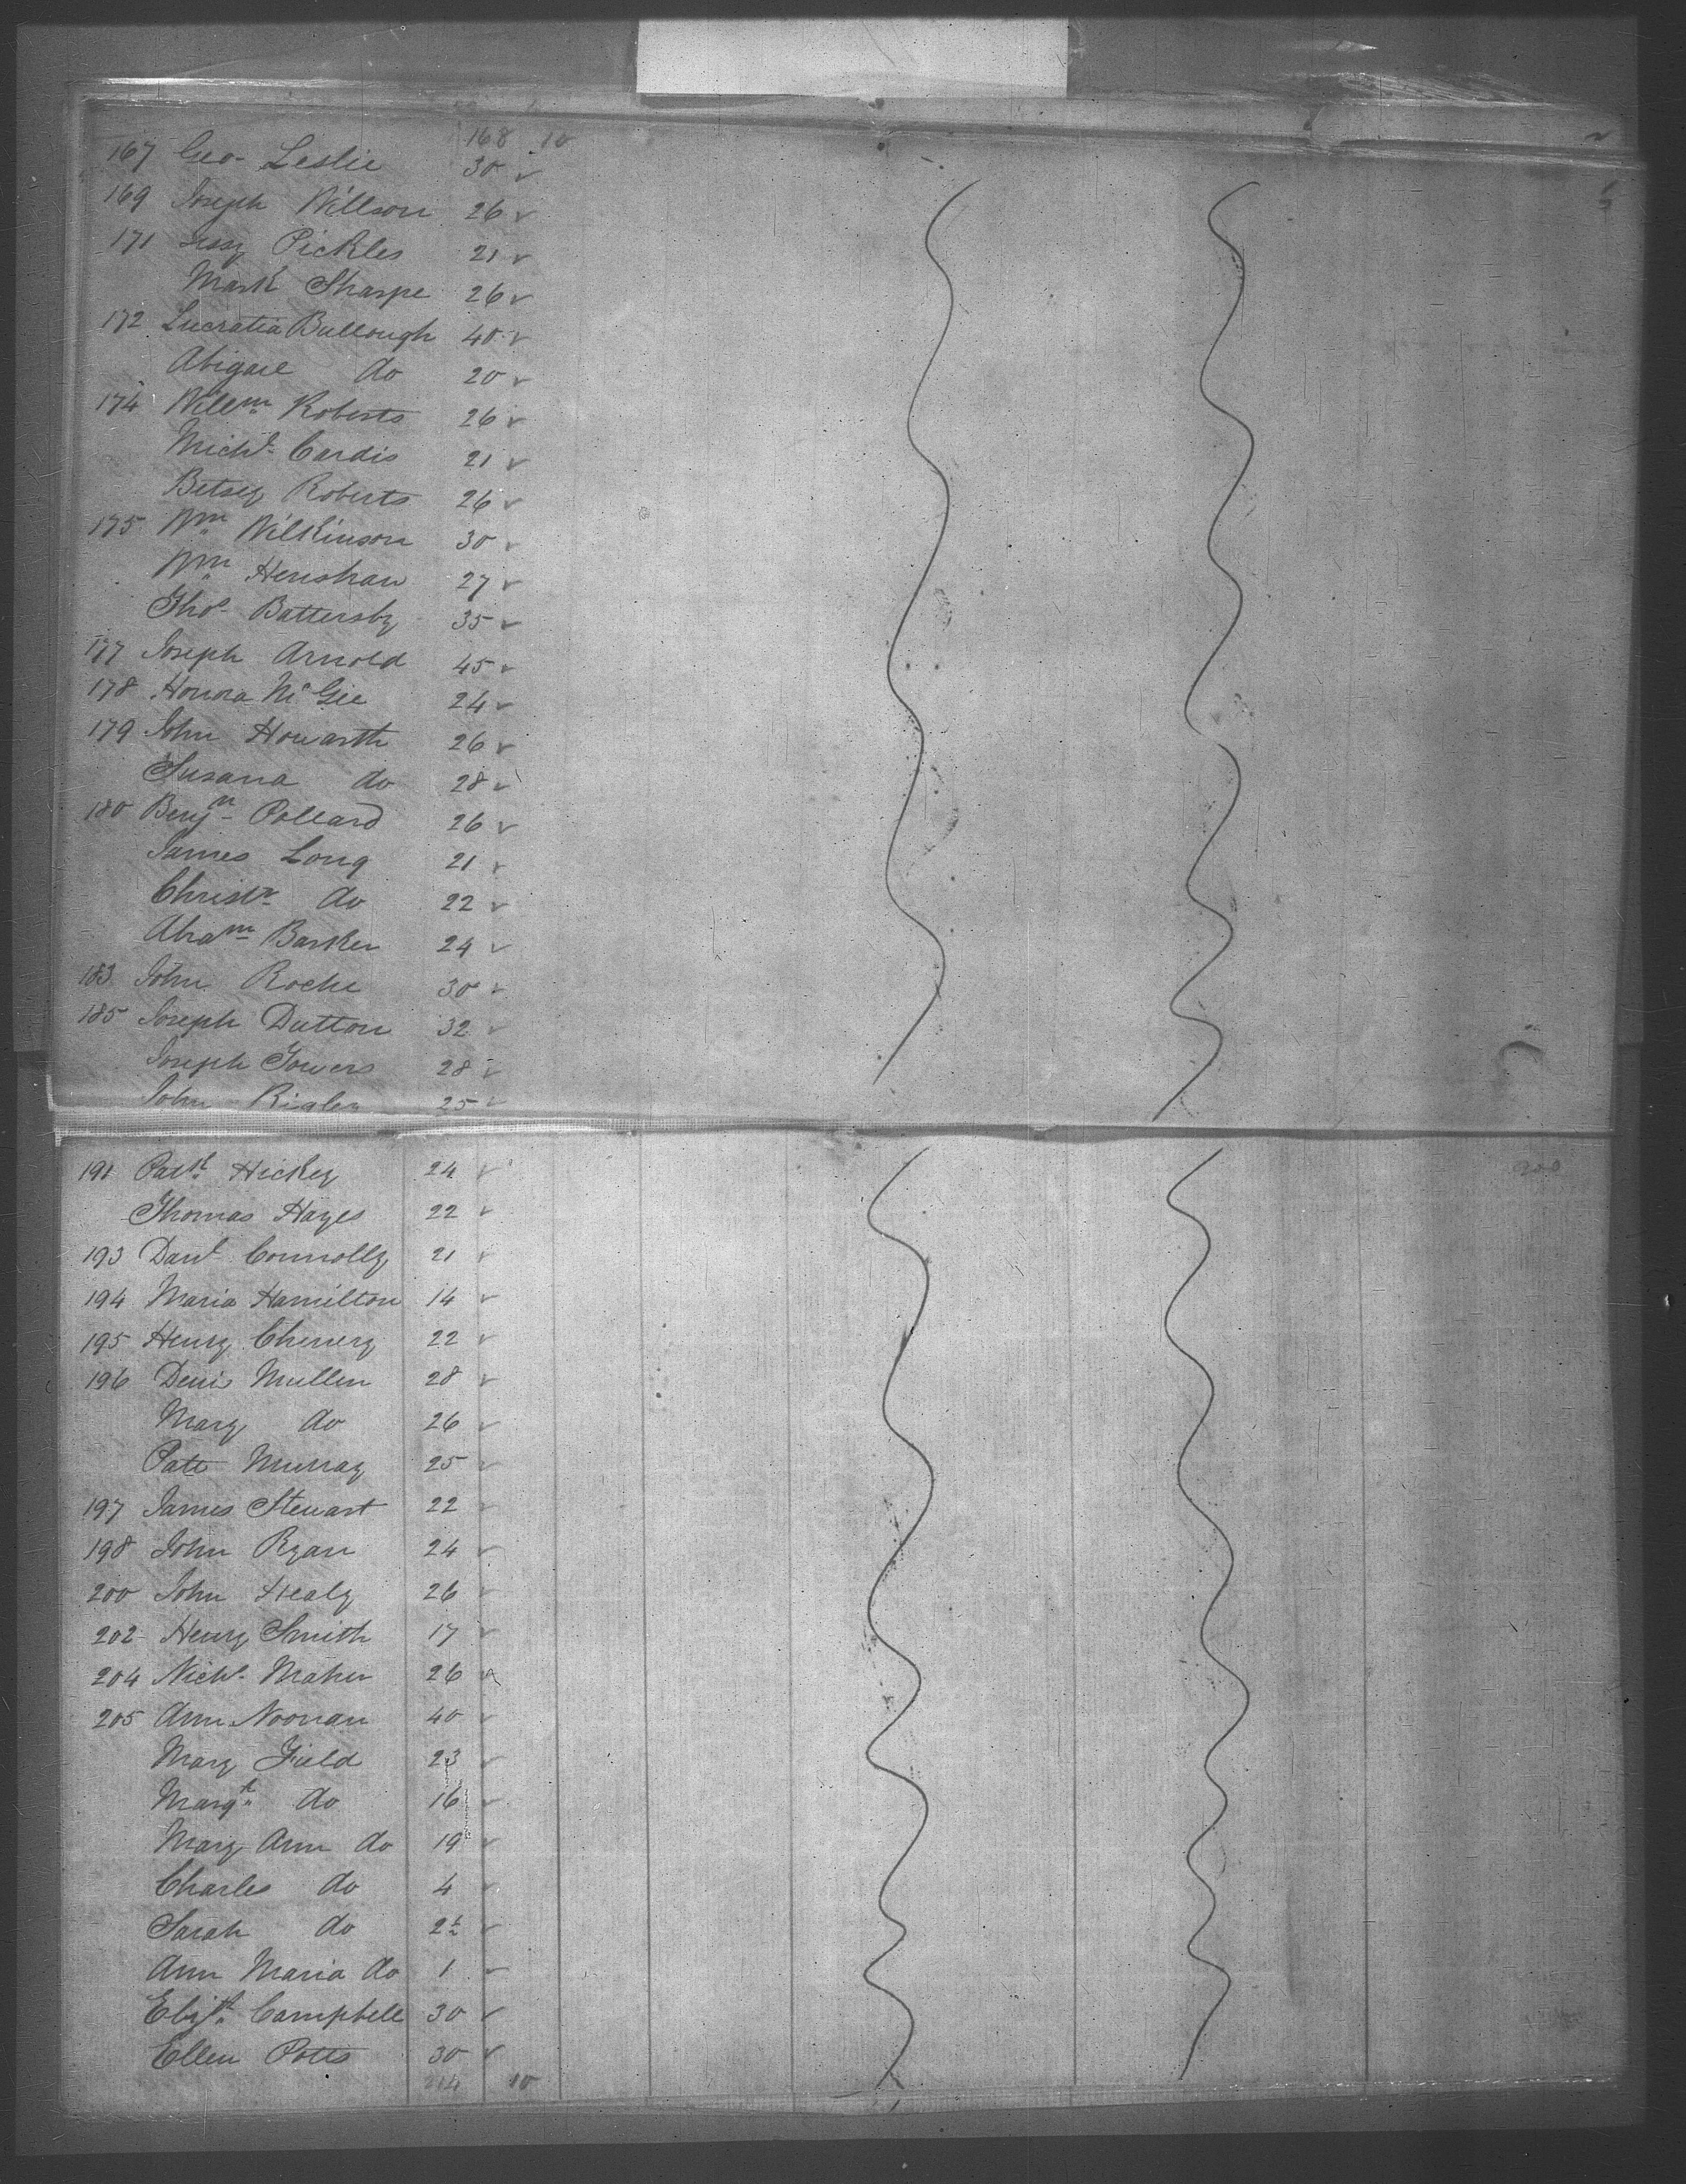 168 10
167 Geo- Leslie 30
169 Joseph Willson 26
171 Pickles 21
Mark Sharpe 26
172 Lucratia Bullough 40
Abigael do 20
174 Willm Roberts 26
Michl Cardis 21
Betsey Roberts 26
175 Wm Wilkinson 30
Wm Henshaw 27
Thos Battersby 35
177 Joseph Arnold 45
178 Honora McGee 24
179 John Howarth 26
Susana do 28
180 Benjn Pollard 26
James Long 21
Christr do 22
Abram Barker 24
183 John Roche 30
185 Joseph Dutton 32
Joseph Towers 28
John Rigley 25
191 Patk Hickey 24
200
Thomas Hayes 22
193 Danl Connolly 21
194 Maria Hamilton 14
195 Henry Chenery 22
196 Denis Mullen 28
Mary do 26
Patt Murray 25
197 James Stewart 22
198 John Ryan 24
200 John Healy 26
202 Henry Smith 17
204 Nichs Maher 26
205 Ann Noonan 40
Mary Field 23
Margt do 16
Mary Ann do 19
Charles do 4
Sarah do 2½
Ann Maria do 1
Elizth Campbell 30
Ellen Potts 30
10